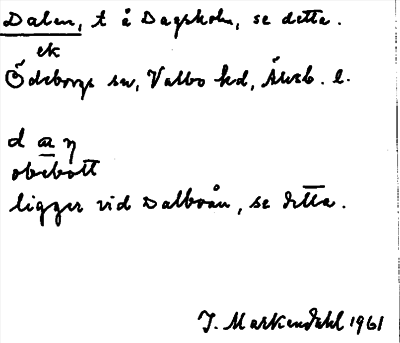 Dalen, t å Dagsholm, se detta.
ek
Ödeborgs sn, Valbo hd, Älvsb. l.
d a ŋ
obebott
ligger vid Dalboån, se detta.
J. Markendahl 1961